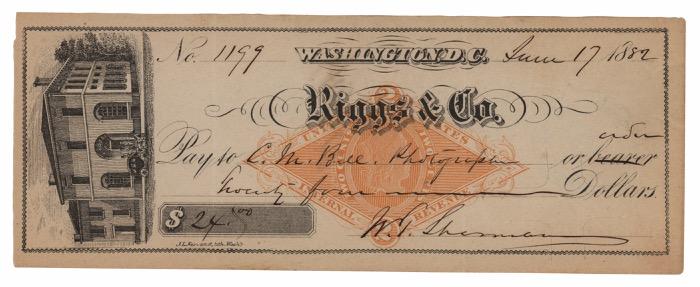 No. 1199 WASHINGTON, D.C. June 17 1882
Riggs & Co.
order
Pay to C. M. Bell. Photographer or bearer
Twenty four Dollars.
$ 24. 00
W. T. Sherman
UNITED STATES
TWO
INTERNAL REVENUE